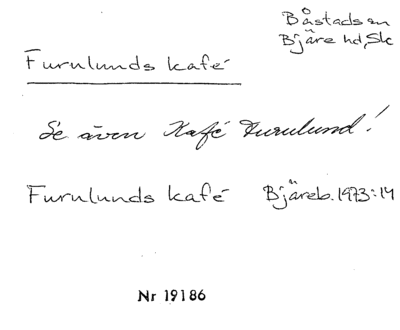 Båstads sn
Bjäre hd, Sk
Furulunds kafé
Se även Kafé Furulund!
Furulunds kafé Bjäreb. 1973:14
Nr 19186